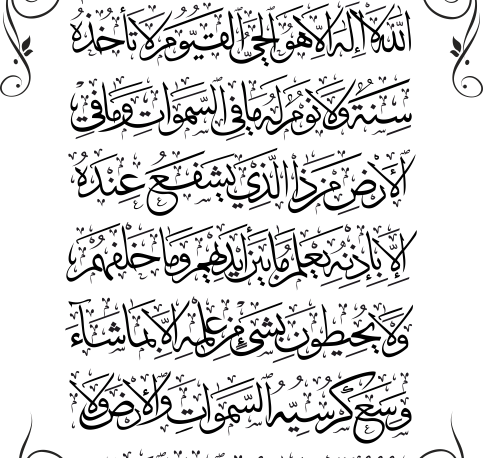 اللَّهُ لَا إِلَٰهَ إِلَّا هُوَ الْحَيُّ الْقَيُّومُ لَا تَأْخُذُهُ
سِنَةٌ وَلَا نَوْمٌ لَهُ مَا فِي السَّمَوَاتِ وَمَا فِي
الْأَرْضِ مَنْ ذَا الَّذِي يَشْفَعُ عِنْدَهُ
إِلَّا بِإِذْنِهِ يَعْلَمُ مَا بَيْنَ أَيْدِيهِمْ وَمَا خَلْفَهُمْ
وَلَا يُحِيطُونَ بِشَيْءٍ مِنْ عِلْمِهِ إِلَّا بِمَا شَاءَ
وَسِعَ كُرْسِيُّهُ السَّمَوَاتِ وَالْأَرْضَ وَلَا